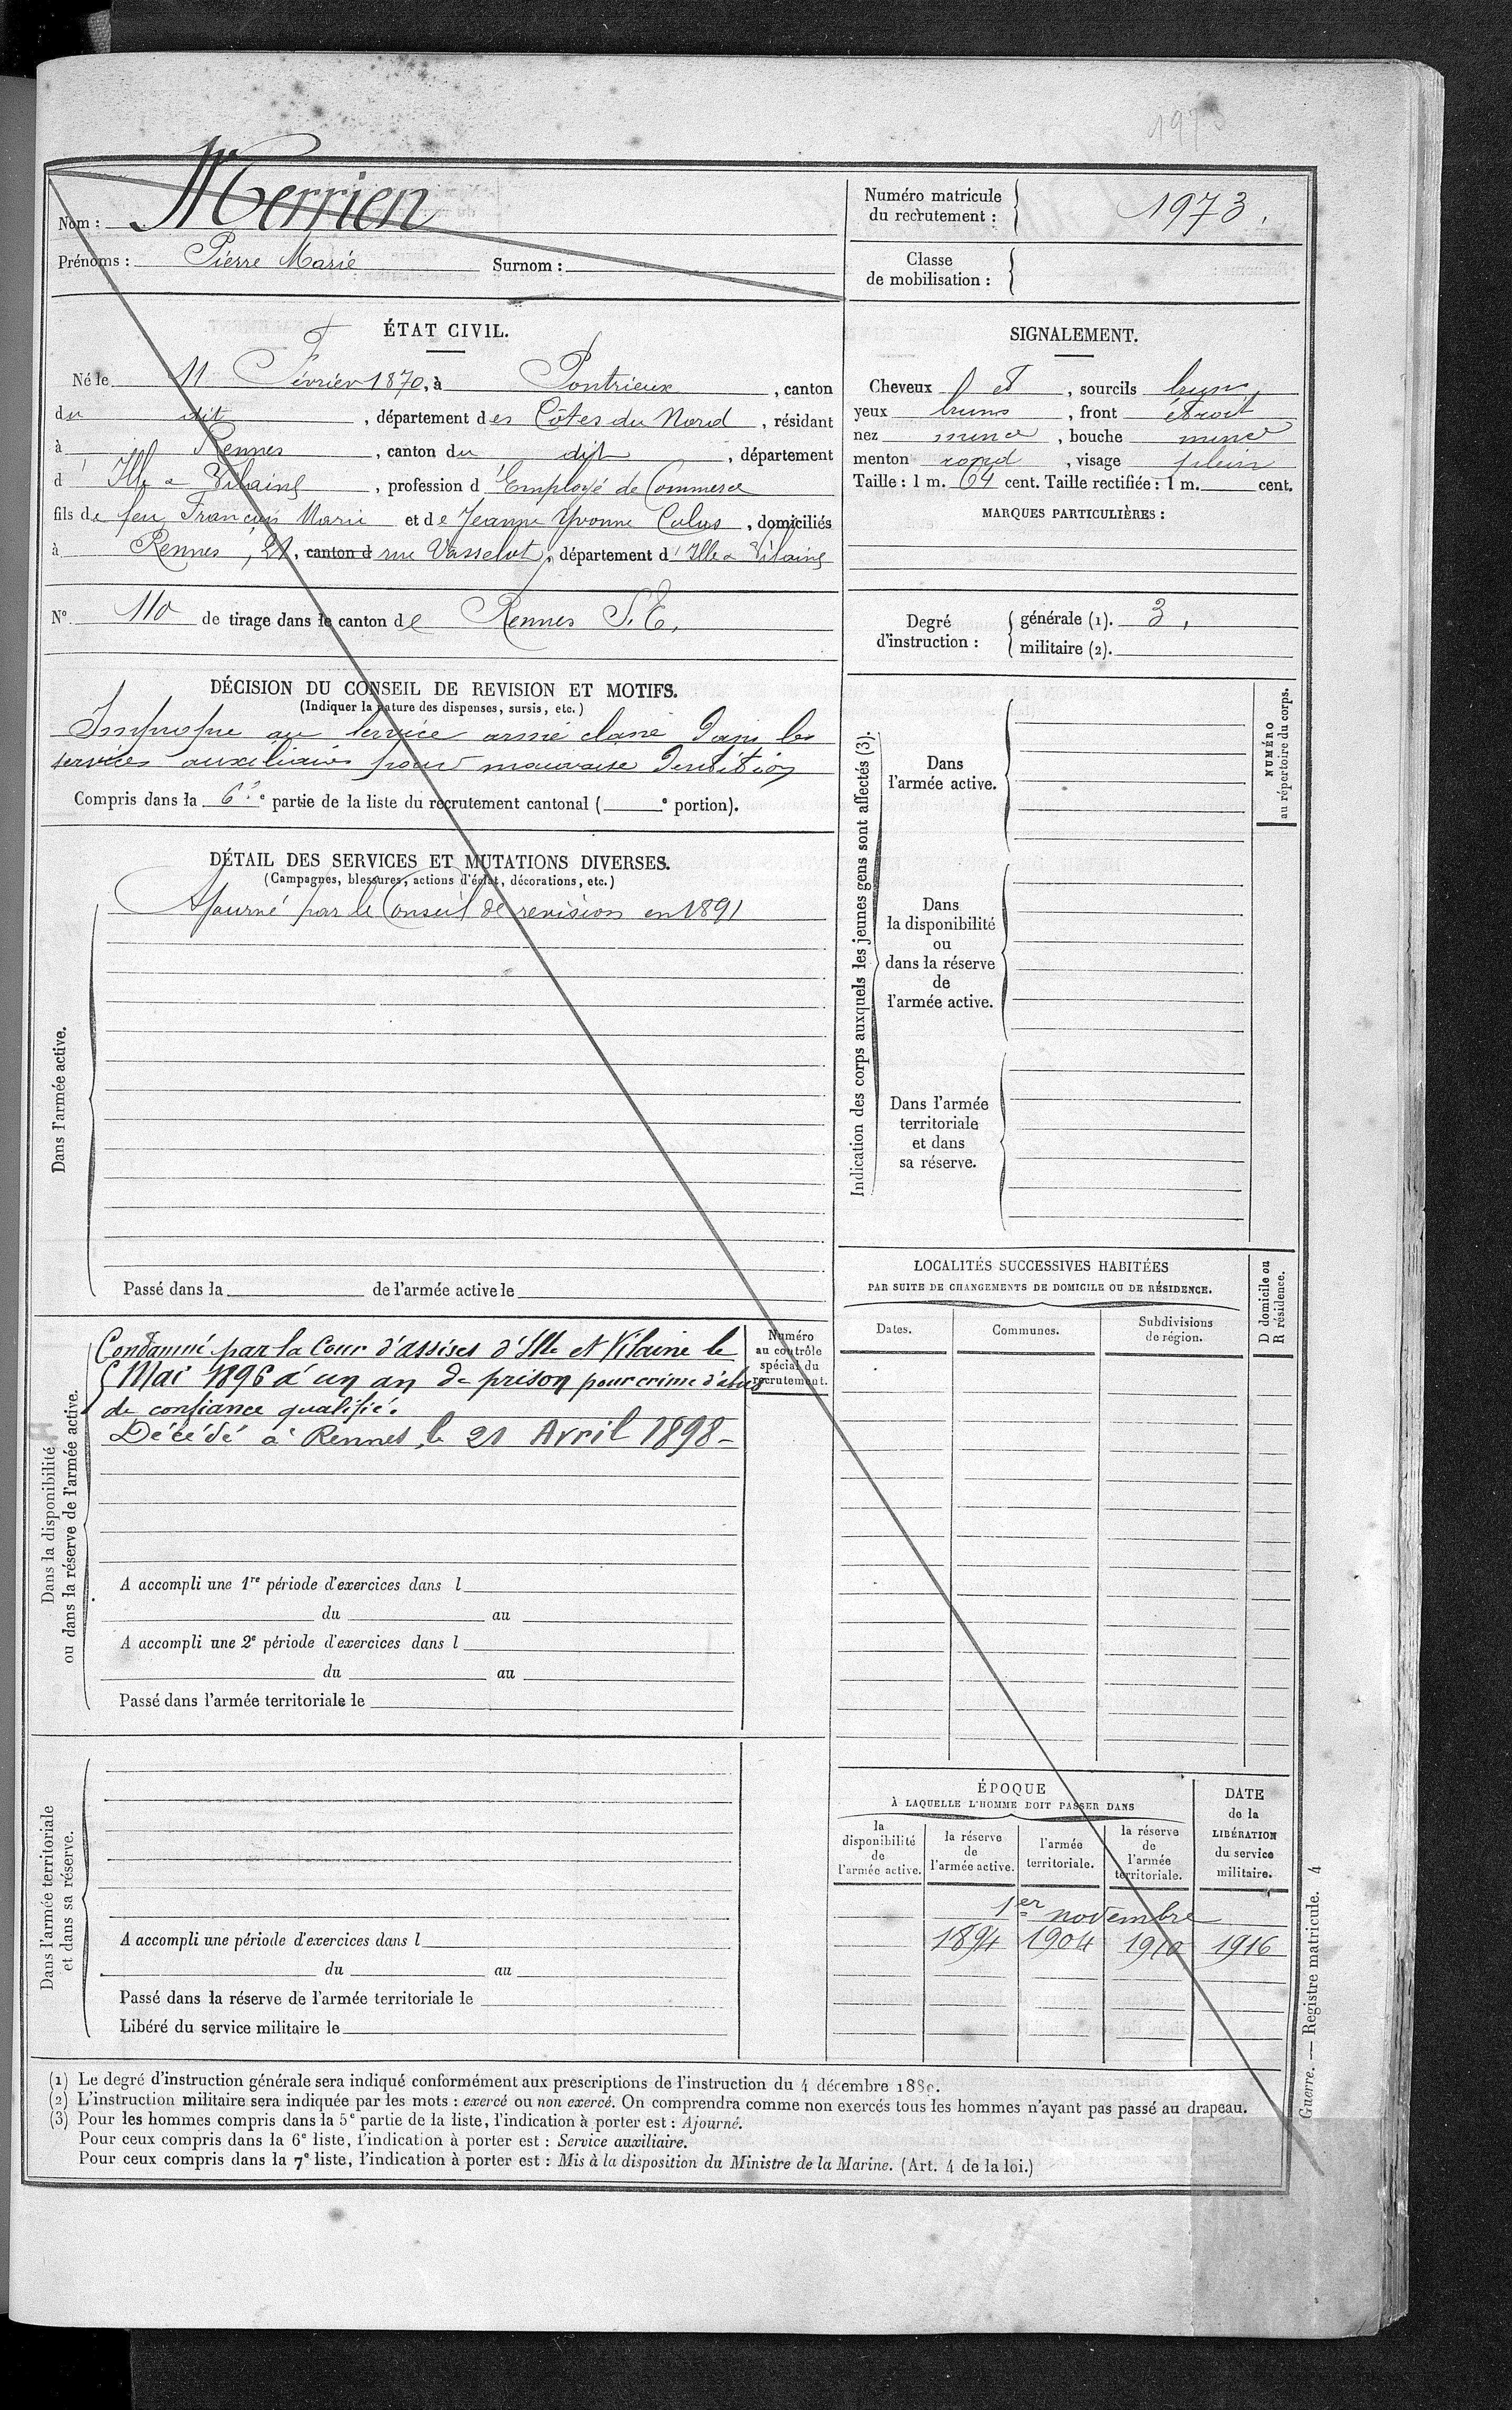 1973
Nom : Merrien
Prénoms : Pierre Marie Surnom :
Numéro matricule du recrutement : 1973.
Classe de mobilisation :
ÉTAT CIVIL.
Né le 11 Février 1870, à Pontrieux, canton
du dit, département des Côtes du Nord, résidant
à Rennes, canton du dit, département
d'Ille & Vilaine, profession d'Employé de Commerce
fils de feu François Marie et de Jeanne Yvonne, domiciliés
à Rennes, 21, canton d rue Vasselot, département d'Ille & Vilaine
N° 110 de tirage dans le canton de Rennes S. E.
SIGNALEMENT.
Cheveux et, sourcils bruns,
yeux bruns, front étroit
nez mince, bouche mince
menton rond, visage plein
Taille : 1 m. 64 cent. Taille rectifiée : 1 m. cent.
MARQUES PARTICULIÈRES :
Degré d'instruction : générale (1). 3.
militaire (2).
DÉCISION DU CONSEIL DE REVISION ET MOTIFS.
(Indiquer la nature des dispenses, sursis, etc.)
Impropre au service armé classé dans les
services auxiliaires pour mauvaise dentition
Compris dans la 6e partie de la liste du recrutement cantonal ( e portion).
DÉTAIL DES SERVICES ET MUTATIONS DIVERSES.
(Campagnes, blessures, actions d'éclat, décorations, etc.)
Dans l'armée active.
Ajourné par le Conseil de revision en 1891
Passé dans la de l'armée active le
Indication des corps auxquels les jeunes gens sont affectés (3).
Dans
l'armée active.
Dans
la disponibilité
ou
dans la réserve
de
l'armée active.
Dans l'armée
territoriale
et dans
sa réserve.
NUMÉRO
au répertoire du corps.
Dans la disponibilité
ou dans la réserve de l'armée active.
Condamné par la Cour d'assises d'Ille et Vilaine le
5 Mai 1896 à un an de prison pour crime d'abus
de confiance qualifié.
Décédé à Rennes, le 21 Avril 1898 -
Numéro
au contrôle
spécial du
recrutement.
A accompli une 1re période d'exercices dans l
du au
A accompli une 2e période d'exercices dans l
du au
Passé dans l'armée territoriale le
LOCALITÉS SUCCESSIVES HABITÉES
PAR SUITE DE CHANGEMENTS DE DOMICILE OU DE RÉSIDENCE.
D domicile ou
R résidence.
Dates. Communes. Subdivisions
de région.
Dans l'armée territoriale
et dans sa réserve.
A accompli une période d'exercices dans l
du au
Passé dans la réserve de l'armée territoriale le
Libéré du service militaire le
ÉPOQUE
À LAQUELLE L'HOMME DOIT PASSER DANS
la
disponibilité
de
l'armée active.
la réserve
de
l'armée active.
l'armée
territoriale.
la réserve
de
l'armée
territoriale.
DATE
de la
LIBÉRATION
du service
militaire.
1er novembre
1894 1904 1910 1916
(1) Le degré d'instruction générale sera indiqué conformément aux prescriptions de l'instruction du 4 décembre 1889.
(2) L'instruction militaire sera indiquée par les mots : exercé ou non exercé. On comprendra comme non exercés tous les hommes n'ayant pas passé au drapeau.
(3) Pour les hommes compris dans la 5e partie de la liste, l'indication à porter est : Ajourné.
Pour ceux compris dans la 6e liste, l'indication à porter est : Service auxiliaire.
Pour ceux compris dans la 7e liste, l'indication à porter est : Mis à la disposition du Ministre de la Marine. (Art. 4 de la loi.)
Guerre. — Registre matricule. 4